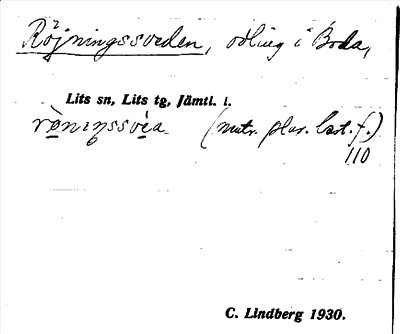 Röjningssveden, odling i Boda,
Lits sn, Lits tg, Jämtl. l.
(mutr. plur. best. f.)
110
C. Lindberg 1930.